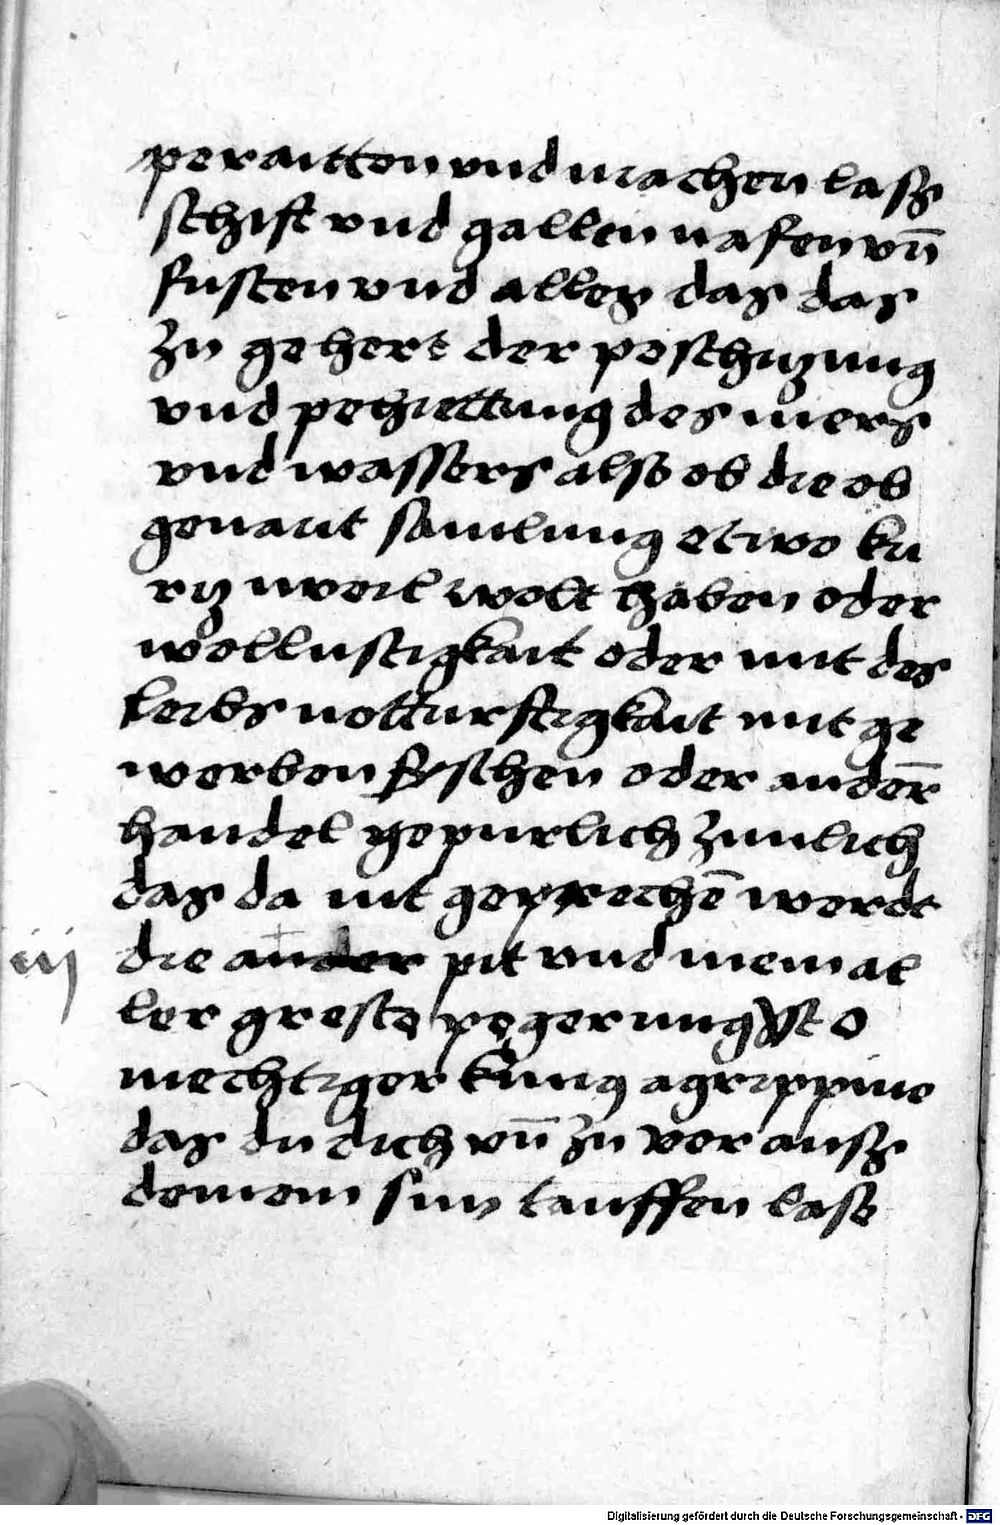 peraitten vnd machen lasz
schift vnd gallen nafen vn̄
fusten vnd alles das das
zu gehert der peschizung
vnd pehiettung des mers
vnd wassers also ob die ob
genant samlung etwo ku
rtz weil wolt haben oder
wollustigkait oder mit des
leibs notturftigkait mit ge
werben fyschen oder ander̄
handel gepurlich zimlich
das da nit geprechē werde
iij die ander pit vnd mein al
ler greste pegerung yst o
mechtiger kunig agrippine
das du dich vn̄ zu vor ausz
deinem sun tauffen lase
Digitalisierung gefördert durch die Deutsche Forschungsgemeinschaft - DFG